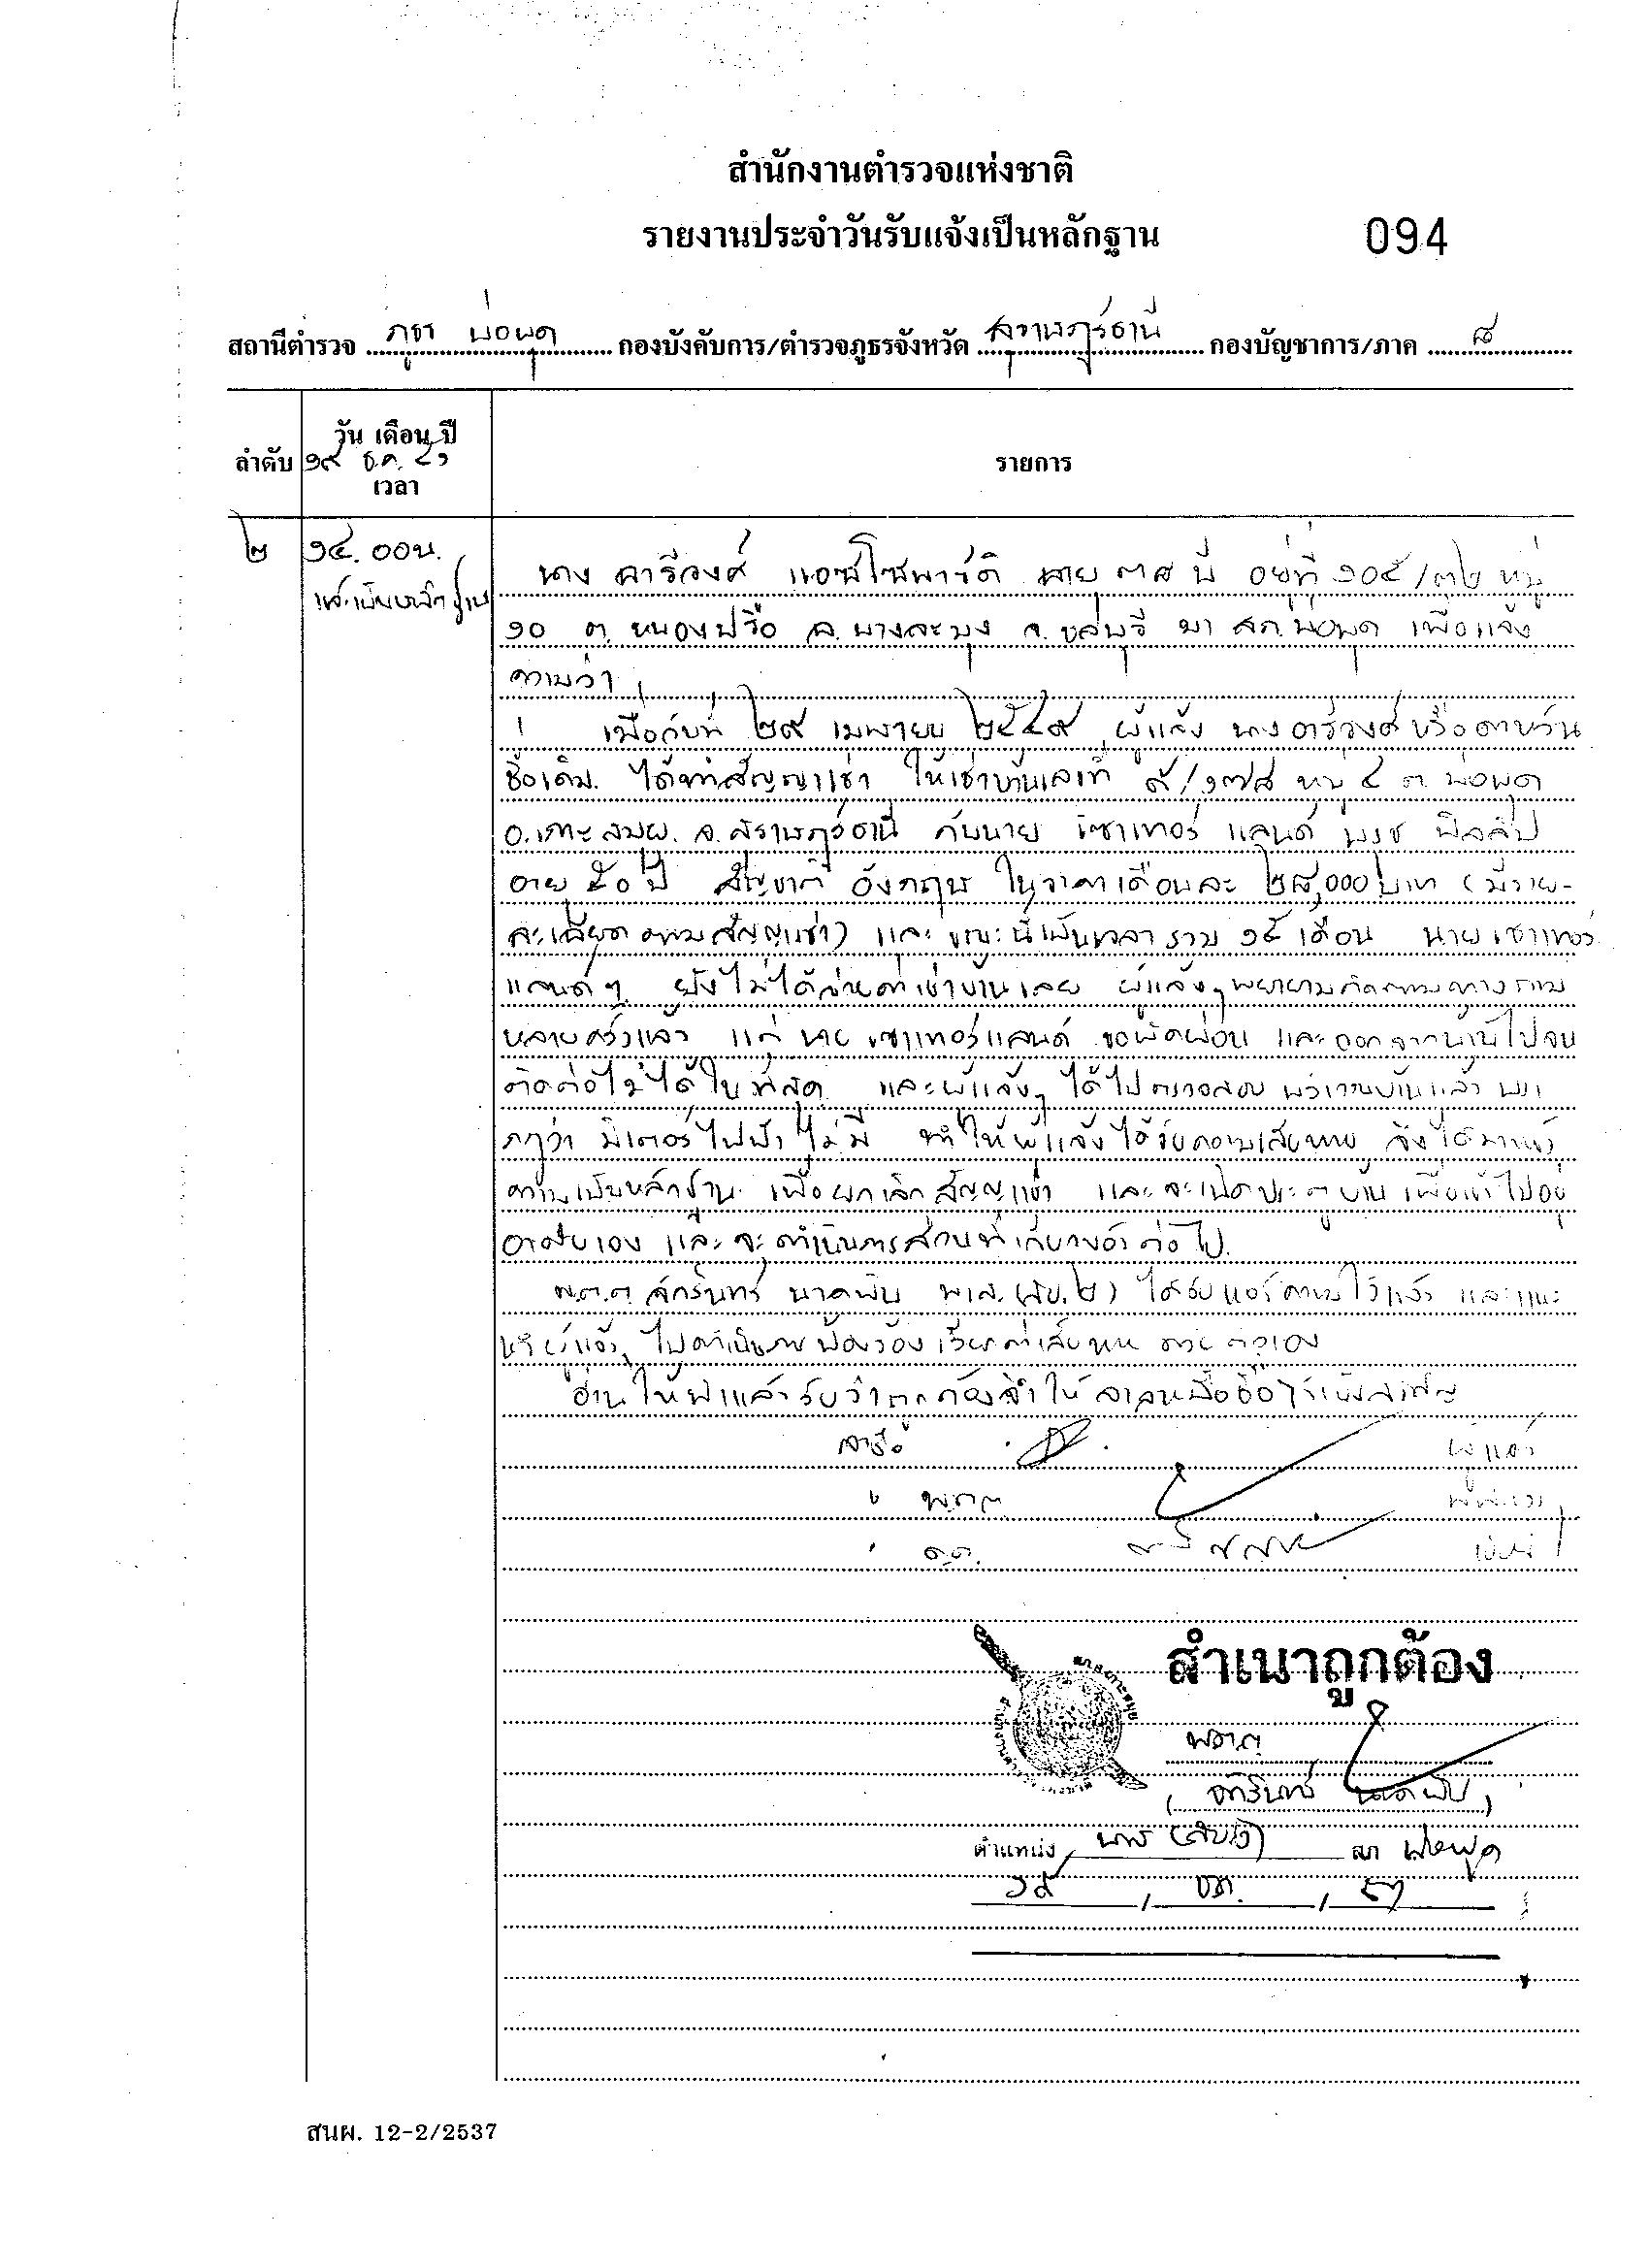 สำนักงานตำรวจแห่งชาติ
รายงานประจำวันรับแจ้งเป็นหลักฐาน
094
สถานีตำรวจ ภูธร บ่อผุด กองบังคับการ/ตำรวจภูธรจังหวัด สุราษฎร์ธานี กองบัญชาการ/ภาค ๘
ลำดับ วัน เดือน ปี เวลา รายการ
๑๙ ธ.ค.
๒ ๑๔.๐๐น.
แจ้งเป็นหลักฐาน
นาง อารีวงศ์ อายุ ๓๘ ปี อยู่ที่ ๑๐๕/๓๒ หมู่
๑๐ ต.หนองปรือ อ.บางละมุง จ.ชลบุรี มา สภ.บ่อผุด เพื่อแจ้ง
ความว่า
เมื่อวันที่ ๒๙ เมษายน ๒๕๔๙ ผู้แจ้ง นาง อารีวงศ์ หรือ
ชื่อเดิม ได้ทำสัญญาเช่า ให้เช่าบ้านเลขที่ ๙/๑๗๘ หมู่ ๔ ต.บ่อผุด
อ.เกาะสมุย จ.สุราษฎร์ธานี กับนาย เซาเทอร์แลนด์ ฟิลลิป
อายุ ๕๐ ปี สัญชาติ อังกฤษ ในราคาเดือนละ ๒๘,๐๐๐ บาท (มีราย-
ละเอียดตามสัญญาเช่า) และ ขณะนี้เป็นเวลา รวม ๑๕ เดือน นาย เซาเทอร์
แลนด์ฯ ยังไม่ได้จ่ายค่าเช่าบ้านเลย ผู้แจ้งฯ พยายามติดตามทวงถาม
หลายครั้งแล้ว แต่ นาย เซาเทอร์แลนด์ ขอผัดผ่อน และออกจากบ้านไปจน
ติดต่อไม่ได้ในที่สุด และผู้แจ้งฯ ได้ไปตรวจสอบ บริเวณบ้านแล้ว
ว่า มิเตอร์ไฟฟ้าไม่มี ทำให้ผู้แจ้งได้รับความเสียหาย จึงได้มาแจ้ง
ความเป็นหลักฐาน เพื่อยกเลิกสัญญาเช่า และจะเปิดประตูบ้าน เพื่อเข้าไปอยู่
อาศัยเอง และจะดำเนินการส่วนที่เกี่ยวข้องต่อไป
พ.ต.ต. จักรินทร์ นาคพิน พงส.(สบ.๒) ได้รับแจ้งความไว้แล้ว และแนะ
นำผู้แจ้งฯ ไปดำเนินการฟ้องร้อง เรียกค่าเสียหาย ด้วยตัวเอง
อ่านให้ฟังแล้วรับว่าถูกต้องจึงให้ลงลายมือชื่อไว้เป็นสำคัญ
ลงชื่อ ผู้แจ้ง
พ.ต.ต.
ด.ต.
สำเนาถูกต้อง
พ.ต.ต.
(จักรินทร์ นาคพิน)
ตำแหน่ง พงส (สบ๒) สภ บ่อผุด
๑๙ / ธค. /
สนผ. 12-2/2537